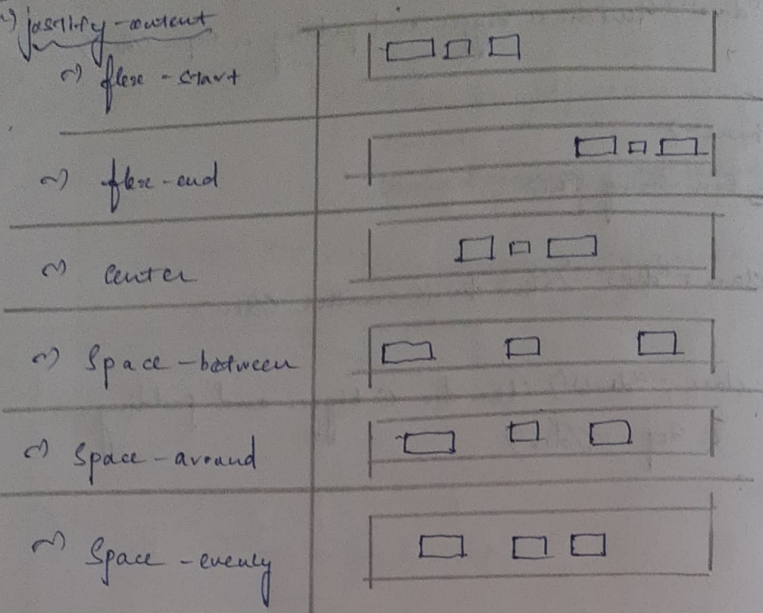 ~) justify-content
~) flex-start
~) flex-end
~) center
~) Space-between
~) Space-around
~) Space-evenly